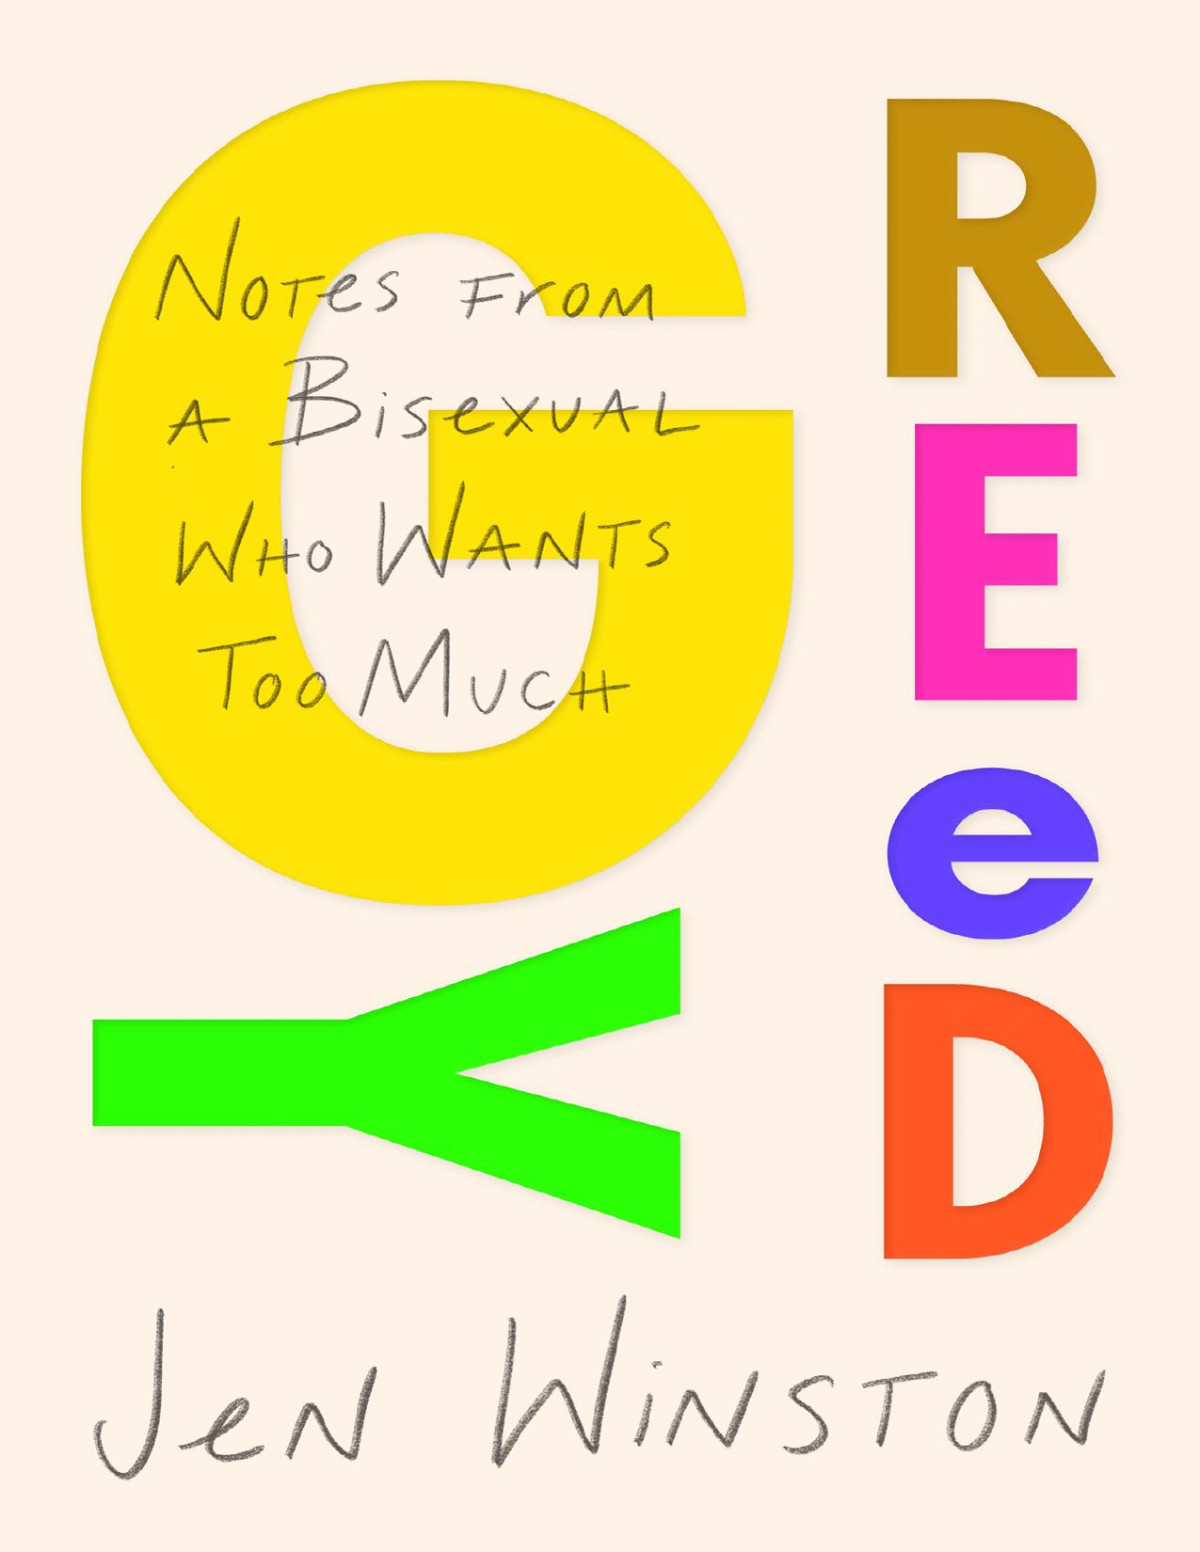 G
REeD
Y
Notes From
A Bisexual
Who Wants
Too Much
Jen Winston